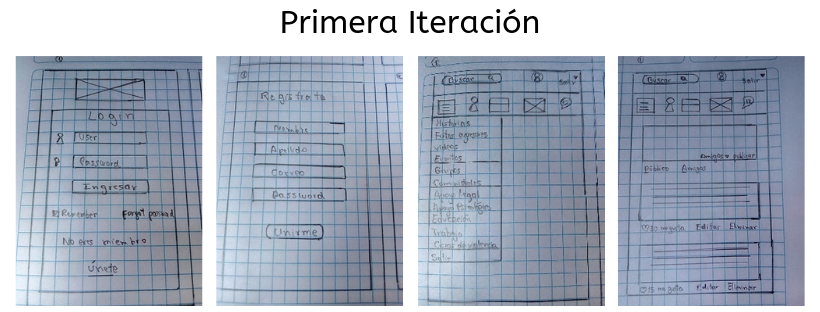 Primera Iteración
Login
User
Password
Ingresar
Remember Forgot password
No eres miembro
Únete
Registrate
Nombre
Apellido
Correo
Password
Unirme
Buscar
Salir
Historias
Entre agresores
videos
Eventos
Grupos
Comunidades
Apoyo legal
Apoyo Psicologico
Educación
Trabajo
Casos de violencia
Salir
Buscar
Salir
Amigos publicar
Público Amigos
10 me gusta Editar Eliminar
15 me gusta Editar Eliminar